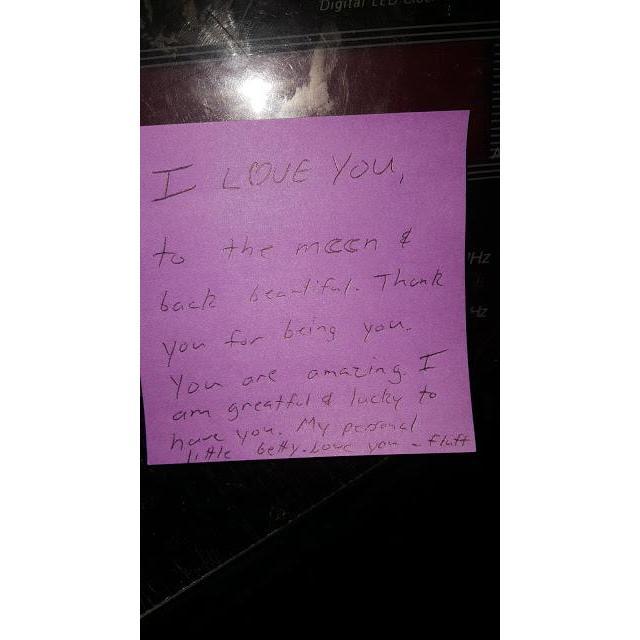 Digital LED Cloc
I LOVE YOU,
to the moon &
back beautiful. Thank
you for being you.
You are amazing. I
am greatful & lucky to
have you. My personal
little betty. Love you - Fluff
Hz
Hz